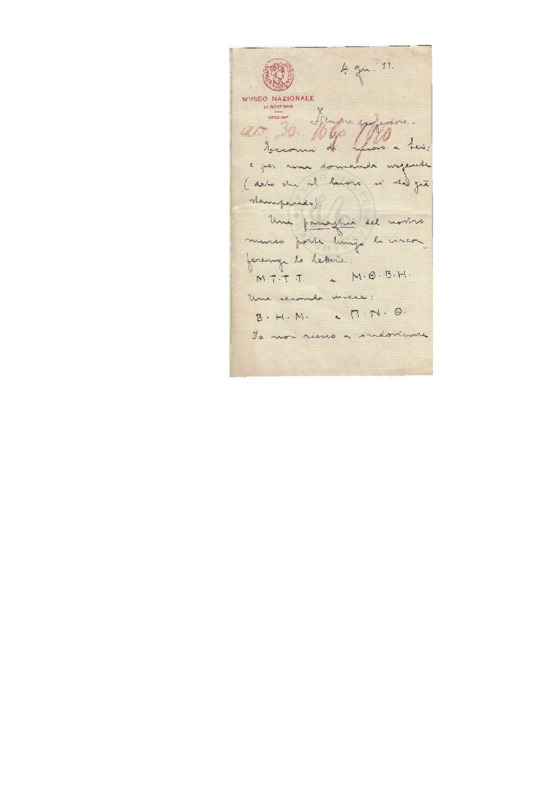 4 giu. 11.
MVSEO NAZIONALE
DI RAVENNA
DIREZIONE
Signore professore.
Eccomi di nuovo a Lei:
e per una domanda urgente
(dato che il lavoro si sta già
stampando).
Una panaghia del nostro
museo porta lungo la circon„
ferenza le lettere:
M·T·T·T e M·Θ·B·H·
Una seconda invece:
B·H·M· e Π·N·Θ·
Io non riesco a indovinare